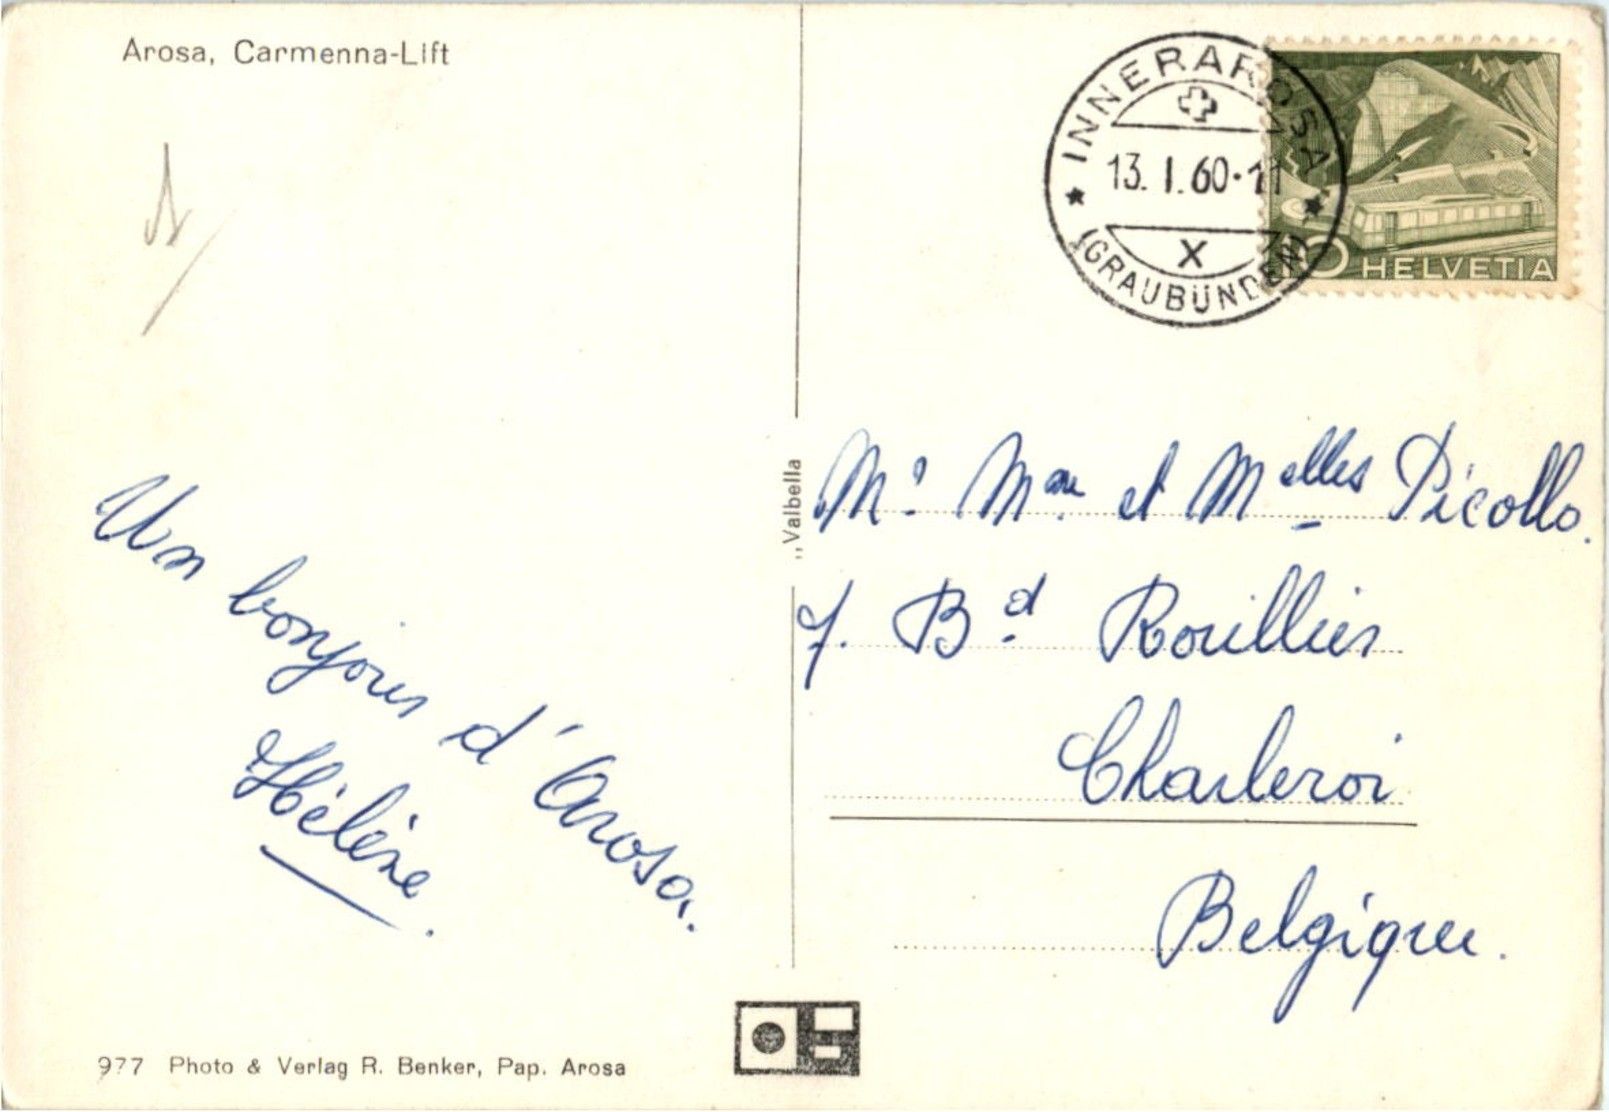 Arosa, Carmenna-Lift
INNERAROSA
13. I. 60-11
X
(GRAUBÜNDEN)
10 HELVETIA
Un bonjour d'Arosa.
Hélène.
„Valbella
Mr. Mme. et Melles Picollo.
7. Bd. Rouillier
Charleroi
Belgique.
977 Photo & Verlag R. Benker, Pap. Arosa